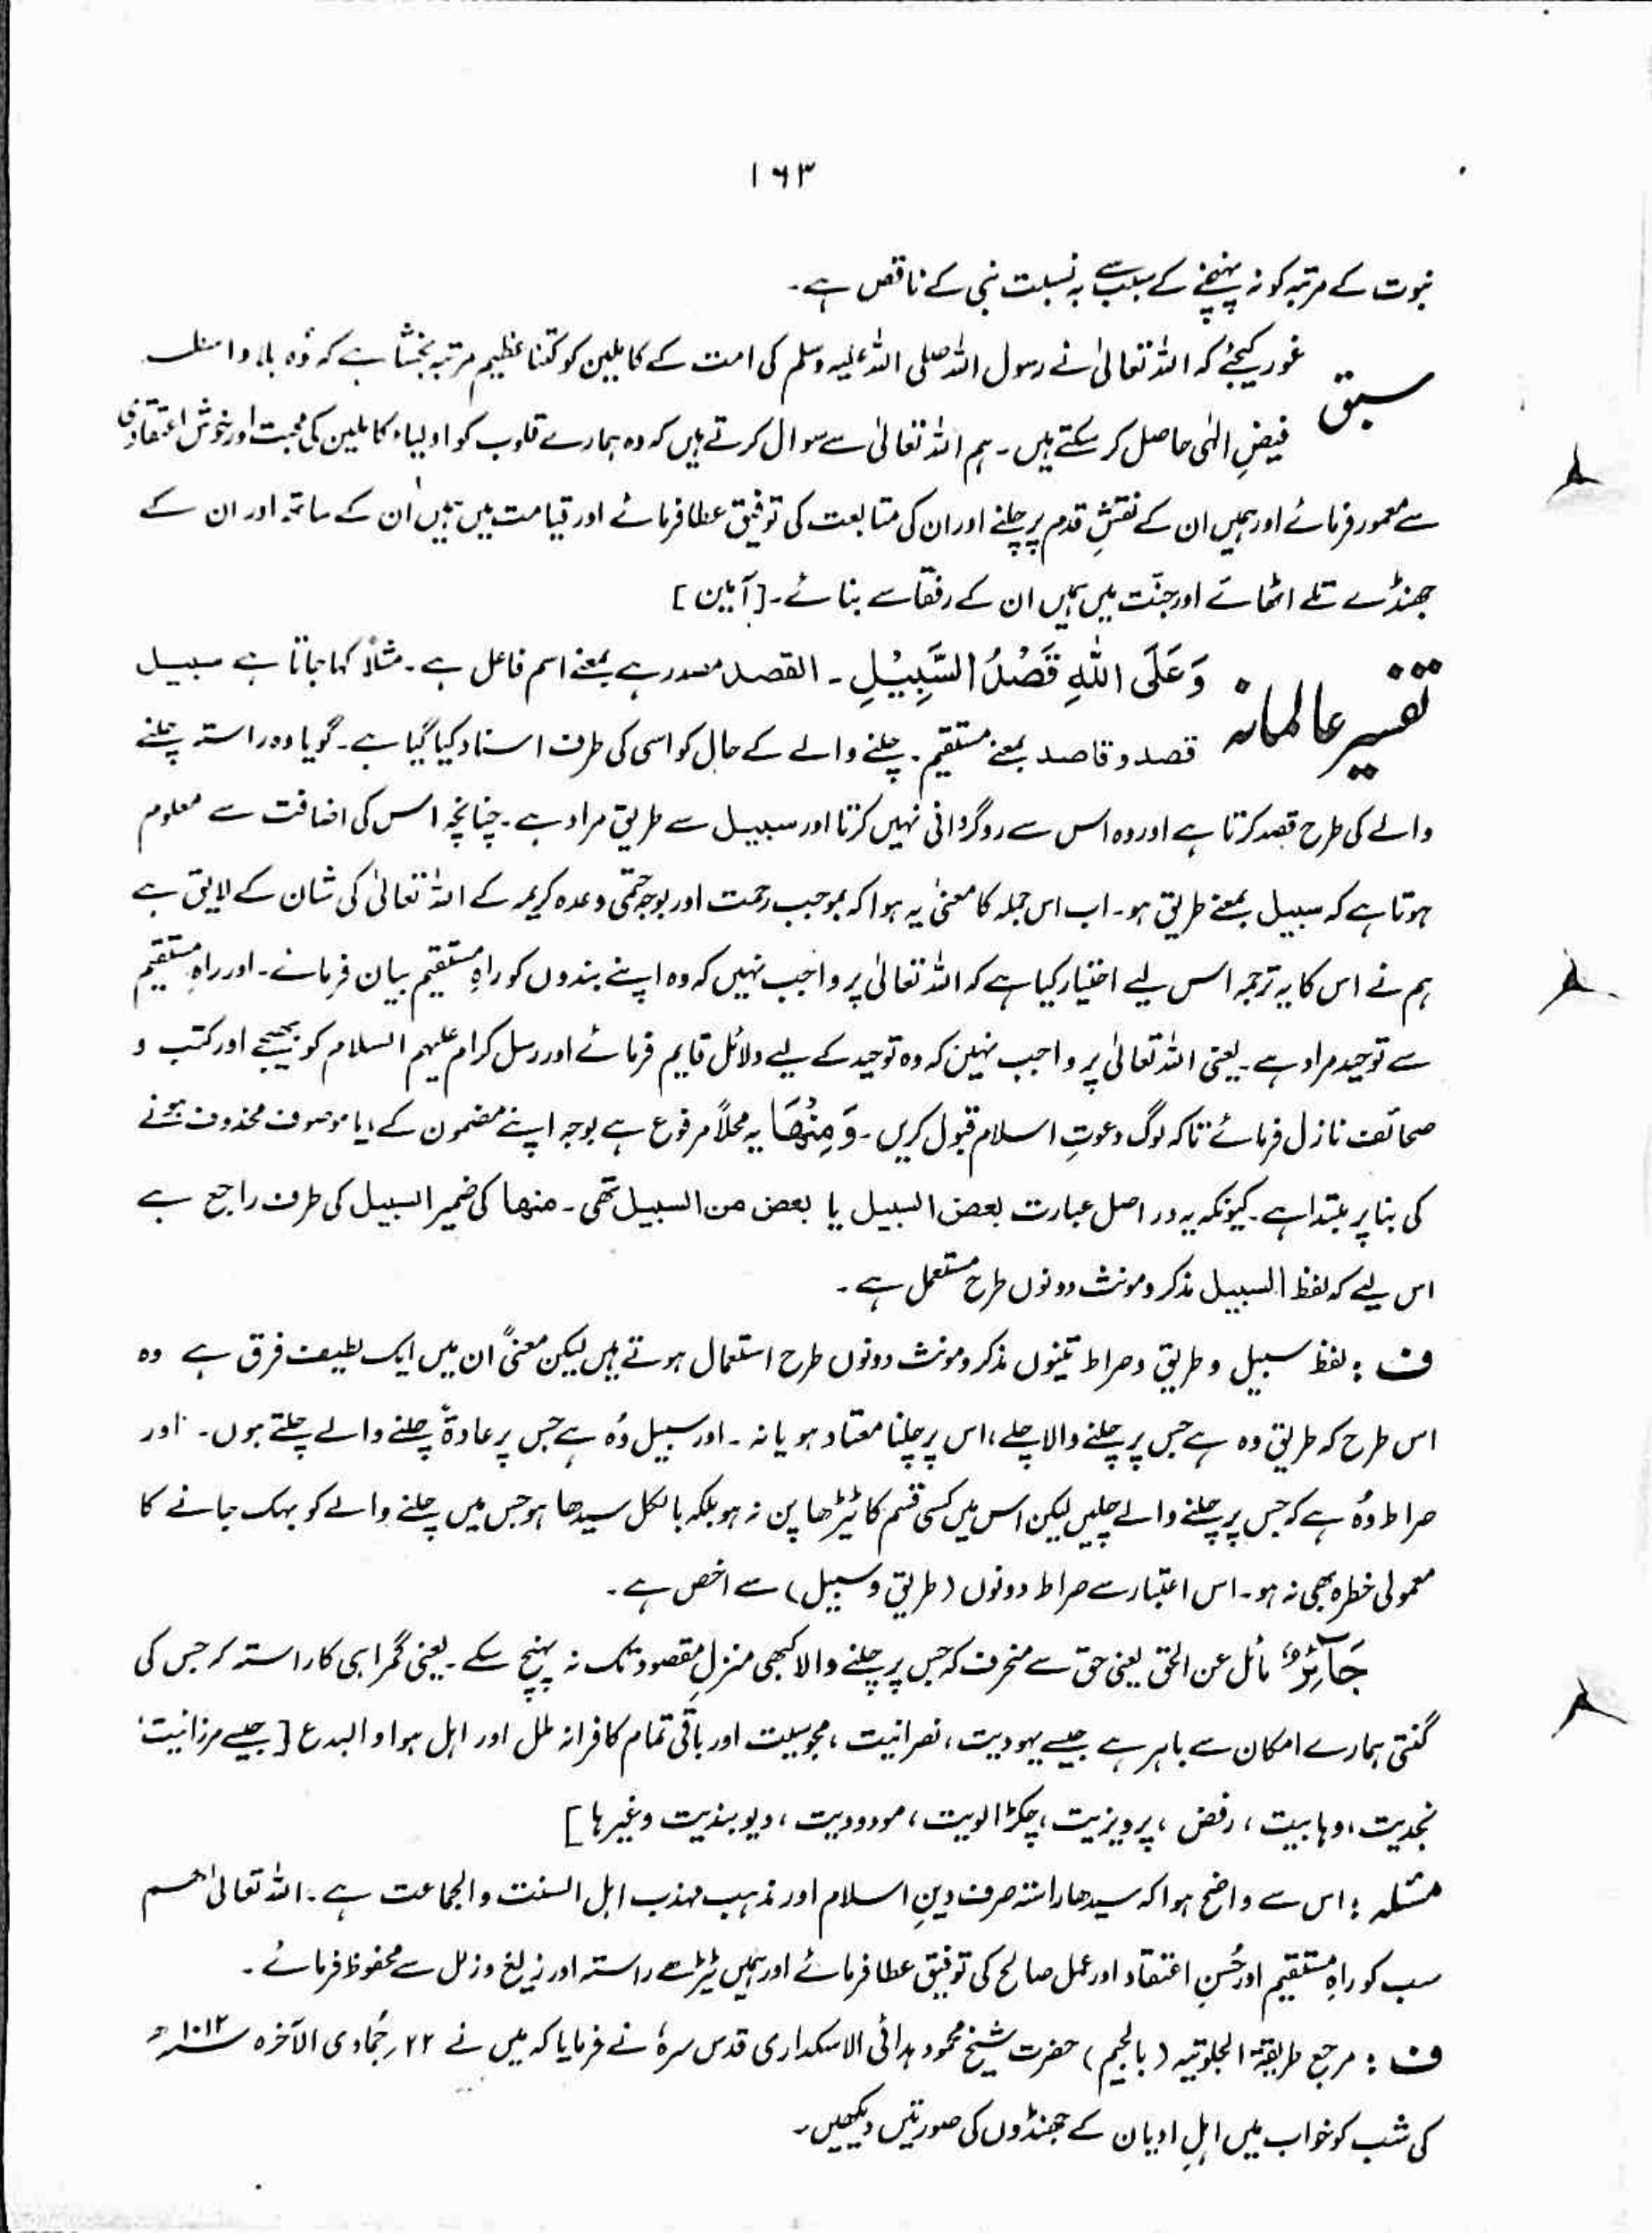 ۱۶۳
نبوت کے مرتبہ کو نہ پہنچنے کے سبب سے بہ نسبت نبی کے ناقص ہے۔
سبق
غور کیجئے کہ اللہ تعالیٰ نے رسول اللہ صلی اللہ علیہ وسلم کی امت کے کاملین کو کتنا عظیم مرتبہ بخشا ہے کہ وُہ بلا واسطہ
فیضِ الٰہی حاصل کر سکتے ہیں۔ ہم اللہ تعالیٰ سے سوال کرتے ہیں کہ وہ ہمارے قلوب کو اولیاء کاملین کی محبت اور خوش اعتقادی
سے معمور فرمائے اور ہمیں ان کے نقشِ قدم پر چلنے اور ان کی متابعت کی توفیق عطا فرمائے اور قیامت میں ہمیں اُن کے ساتھ اور ان کے
جھنڈے تلے اٹھائے اور جنّت میں ہمیں ان کے رفقا سے بنائے۔ [آمین]
تفسیر عالمانہ
وَعَلَى اللّٰهِ قَصْدُ السَّبِيْلِ ۔ القصد مصدر ہے بمعنے اسم فاعل ہے۔ مثلاً کہا جاتا ہے سبیل
قصد و قاصد بمعنے مستقیم۔ چلنے والے کے حال کو اسی کی طرف اسناد کیا گیا ہے۔ گویا وہ راستہ چلنے
والے کی طرح قصد کرتا ہے اور وہ اس سے روگردانی نہیں کرتا اور سبیل سے طریق مراد ہے۔ چنانچہ اس کی اضافت سے معلوم
ہوتا ہے کہ سبیل بمعنے طریق ہو۔ اب اس جملہ کا معنیٰ یہ ہوا کہ بموجب رحمت اور بوجہ حتمی وعدہ کریمہ کے اللہ تعالیٰ کی شان کے لایق ہے
ہم نے اس کا یہ ترجمہ اس لیے اختیار کیا ہے کہ اللہ تعالیٰ پر واجب نہیں کہ وہ اپنے بندوں کو راہِ مستقیم بیان فرمائے۔ اور راہِ مستقیم
سے توحید مراد ہے۔ یعنی اللہ تعالیٰ پر واجب نہیں کہ وہ توحید کے لیے دلائل قایم فرمائے اور رسل کرام علیہم السلام کو بھیجے اور کتب و
صحائف نازل فرمائے تاکہ لوگ دعوتِ اسلام قبول کریں۔ وَمِنْهَا یہ محلاً مرفوع ہے بوجہ اپنے مضمون کے، یا موصوف محذوف ہونے
کی بنا پر مبتدا ہے۔ کیونکہ یہ در اصل عبارت بعض السبیل یا بعض من السبیل تھی۔ منها کی ضمیر السبیل کی طرف راجع ہے
اس لیے کہ لفظ السبیل مذکر و مونث دونوں طرح مستعمل ہے۔
ف : لفظ سبیل و طریق و صراط تینوں مذکر و مونث دونوں طرح استعمال ہوتے ہیں لیکن معنیً ان میں ایک لطیف فرق ہے وہ
اس طرح کہ طریق وہ ہے جس پر چلنے والا چلے، اس پر چلنا معتاد ہو یا نہ ۔ اور سبیل وُہ ہے جس پر عادۃً چلنے والے چلتے ہوں۔ اور
صراط وُہ ہے کہ جس پر چلنے والے چلیں لیکن اس میں کسی قسم کا ٹیڑھا پن نہ ہو بلکہ بالکل سیدھا ہو جس میں چلنے والے کو بہک جانے کا
معمولی خطرہ بھی نہ ہو۔ اس اعتبار سے صراط دونوں (طریق و سبیل) سے اخص ہے۔
جَآئِرٌ ؕ مائل عن الحق یعنی حق سے منحرف کہ جس پر چلنے والا کبھی منزلِ مقصود تک نہ پہنچ سکے۔ یعنی گمراہی کا راستہ کہ جس کی
گنتی ہمارے امکان سے باہر ہے جیسے یہودیت، نصرانیت، مجوسیت اور باقی تمام کافرانہ ملل اور اہل ہوا و البدع [جیسے مرزائیت،
نجدیت، وہابیت، رفض، پرویزیت، چکڑالویت، مودودیت، دیوبندیت وغیرہا]
مسئلہ : اس سے واضح ہوا کہ سیدھا راستہ صرف دینِ اسلام اور مذہب مہذب اہل السنت والجماعت ہے۔ اللہ تعالیٰ ہم
سب کو راہِ مستقیم اور حُسنِ اعتقاد اور عمل صالح کی توفیق عطا فرمائے اور ہمیں ٹیڑھے راستہ اور زیغ و زلل سے محفوظ فرمائے۔
ف : مرجع طریقۃ الجلوتیہ (بالجیم) حضرت شیخ محمود ہدائی الاسکداری قدس سرہٗ نے فرمایا کہ میں نے ۲۲ جُمادی الآخرہ ۱۰۱۲ھ
کی شب کو خواب میں اہلِ ادیان کے جھنڈوں کی صورتیں دیکھیں۔